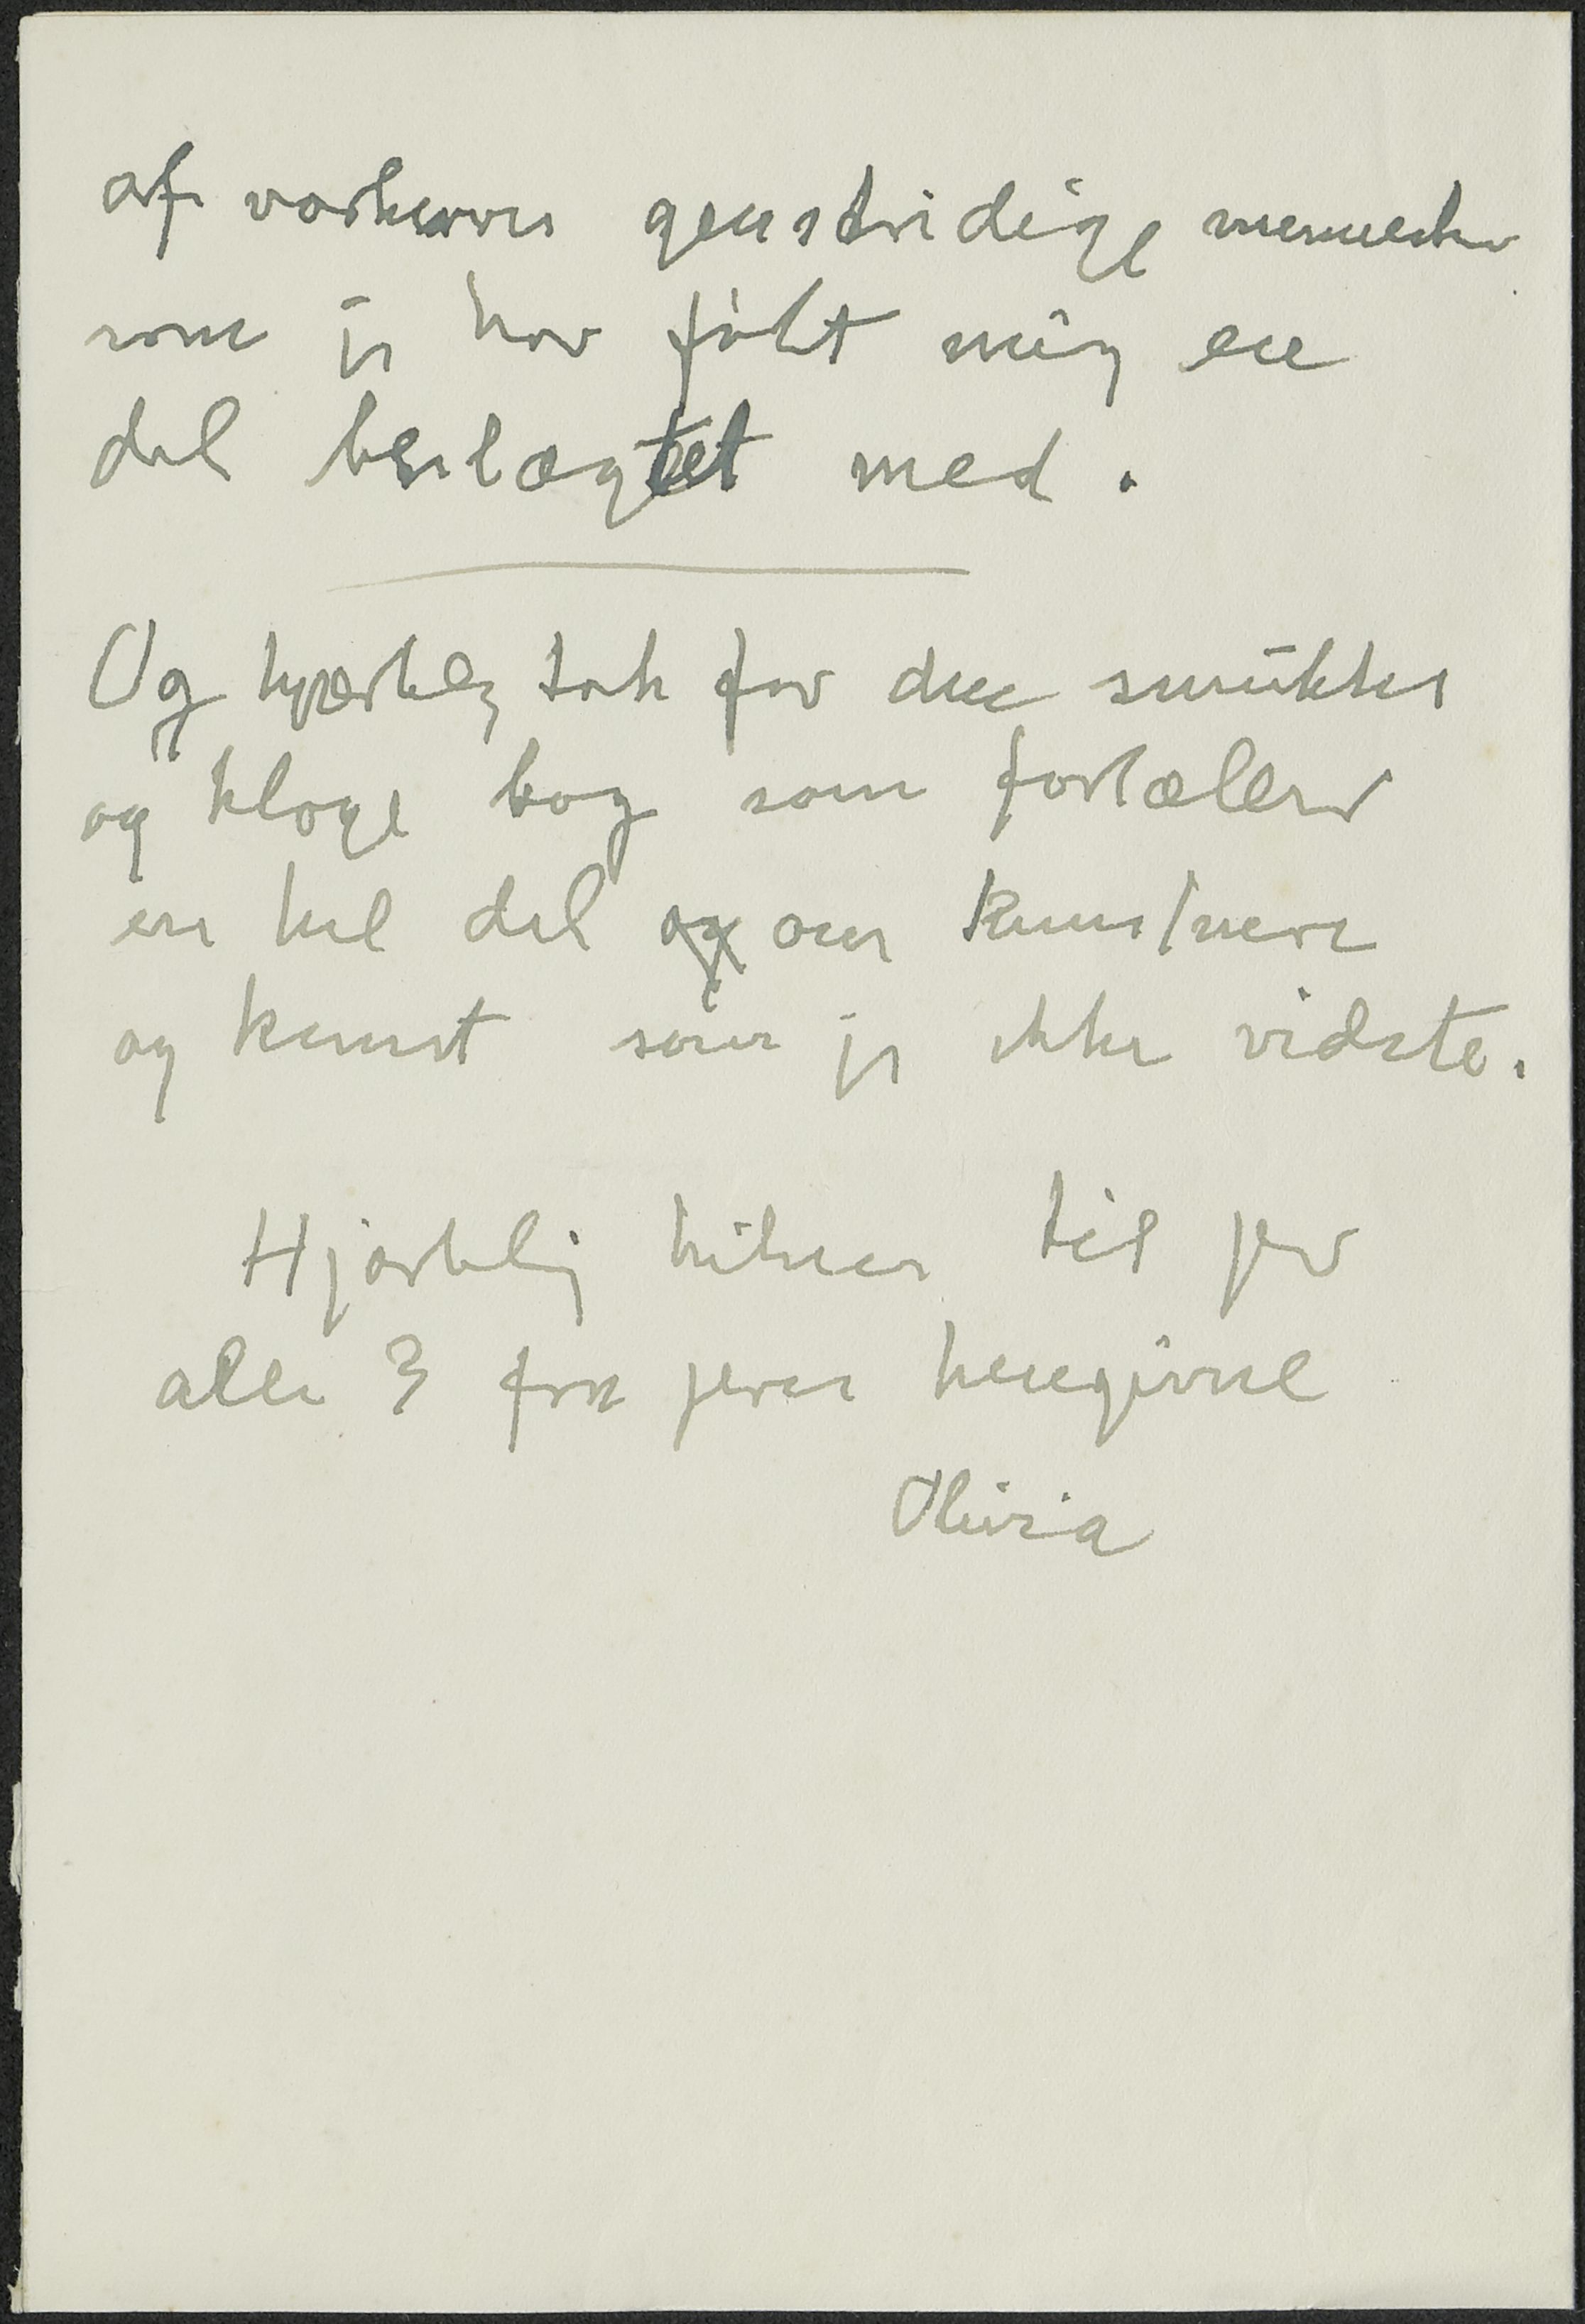 af vorherres genstridige mennesker
som jeg har følt mig en
del beslægtet med.
Og hjærtelig tak for den smukke
og kloge bog som fortæller
en hel del og om kunstnere
og kunst som jeg ikke vidste.
Hjærtelig hilsen til jer
alle 3 fra jeres hengivne
Olivia